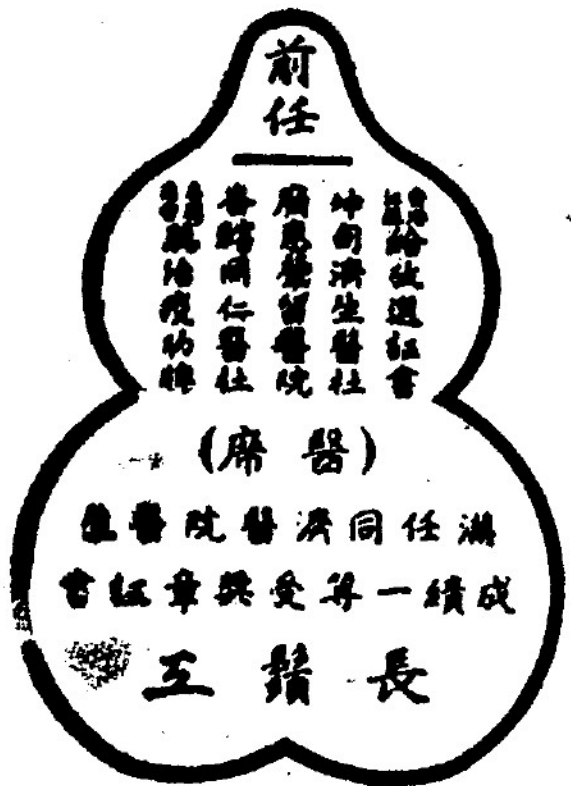 前任
給選証書
坤甸濟生醫社
廣惠肇留醫院
同仁醫社
治疫功牌
(醫席)
任同濟醫院醫
成績一等受獎章証書
長鬚